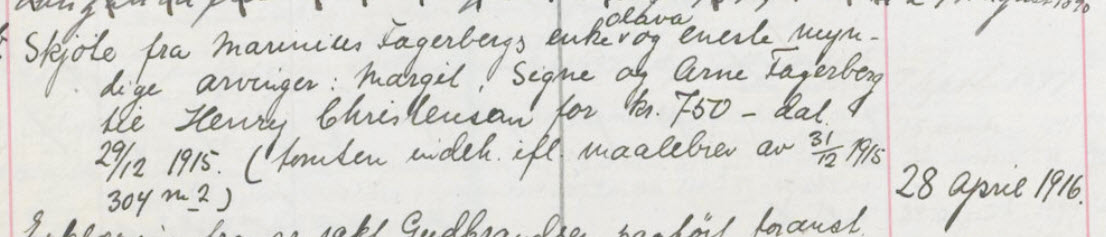 Skjöte fra Marinius Fagerbergs enke Olava og eneste myn-
dige arvinger: Margit, Signe og Arne Fagerberg
til Henry Christensen for kr. 750 – dat.
29/12 1915. (tomten indeh. ifl. maalebrev av 31/12 1915
304 m2)
28 April 1916.